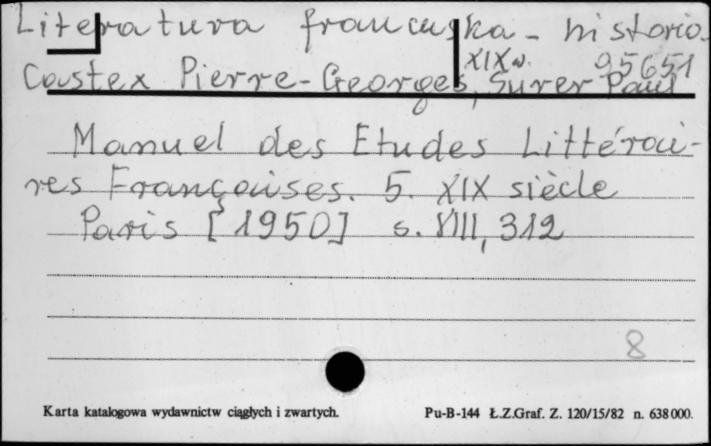 Literatura francuska - historia
XIX w. 95651
Castex Pierre-Georges, Surer Paul
Manuel des Etudes Littérai-
res Françaises. 5. XIX siècle
Paris [1950] s. VIII, 312
8
Karta katalogowa wydawnictw ciągłych i zwartych. Pu-B-144 Ł.Z.Graf. Z. 120/15/82 n. 638000.